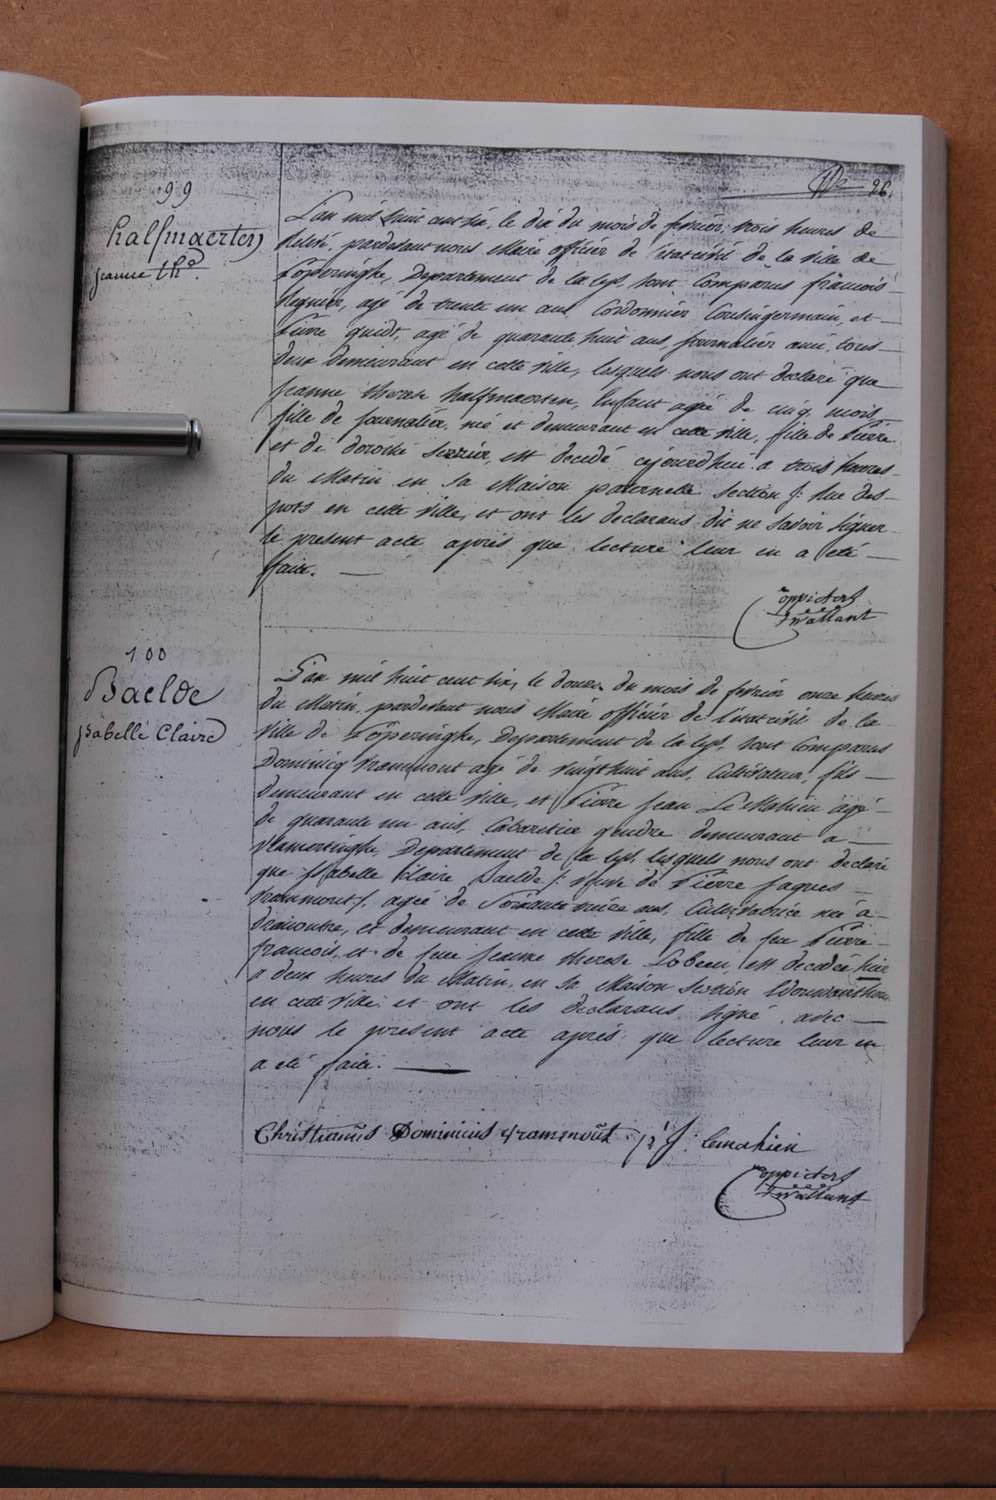 26.
99
halfmaerten
jeanne th.e
L'an mil huit cent six, le dix du mois de fevrier, trois heures de
relevé, pardevant nous Maire officier de l'etatcivil de la ville de
Poperinghe, Departement de la Lys, sont Comparus françois
agé de trente un ans, Cordonnier Cousingermain, et
Pierre quidt, agé de quarante huit ans, journalier ami, tous
deux demeurant en cette ville, lesquels nous ont declaré que
Jeanne therese halfmaerten, Enfant agée de cinq mois
fille de journalier, né et demeurant en cette ville, fille de Pierre
et de dorothé, est decedé cejourdhui a trois heures
du Matin en sa Maison paternelle section f: Rue des
pots en cette ville, et ont les declarans dit ne savoir signer
le present acte après que lecture leur en a été
faite.
oppicters
f.s wallant
100
Baelde
isabelle Claire
L'an mil huit cent six, le douze du mois de fevrier onze heures
du Matin, pardevant nous Maire officier de l'etatcivil de la
Ville de Poperinghe, Departement de la Lys, sont Comparus
Dominicq agé de vingthuit ans, Cultivateur, fils
demeurant en cette ville, et Pierre Jean Le Mahieu agé
de quarante un ans, Cabaretier gendre demeurant a
Vlamertinghe, Departement de la Lys, lesquels nous ont declaré
que Isabelle Claire Baelde /: veuve de Pierre Jaques
agée de Soixante ans, Cultivatrice née a
dranoutre, et demeurant en cette ville, fille de feu Pierre
francois, et de feue jeanne therese Lobeau est decedée hier
a deux heures du Matin, en sa Maison section
en cette ville, et ont les declarans signé avec
nous le present acte après que lecture leur en
a été faite.
Christianus Dominicus J: lemahieu
oppicters
f.s wallant